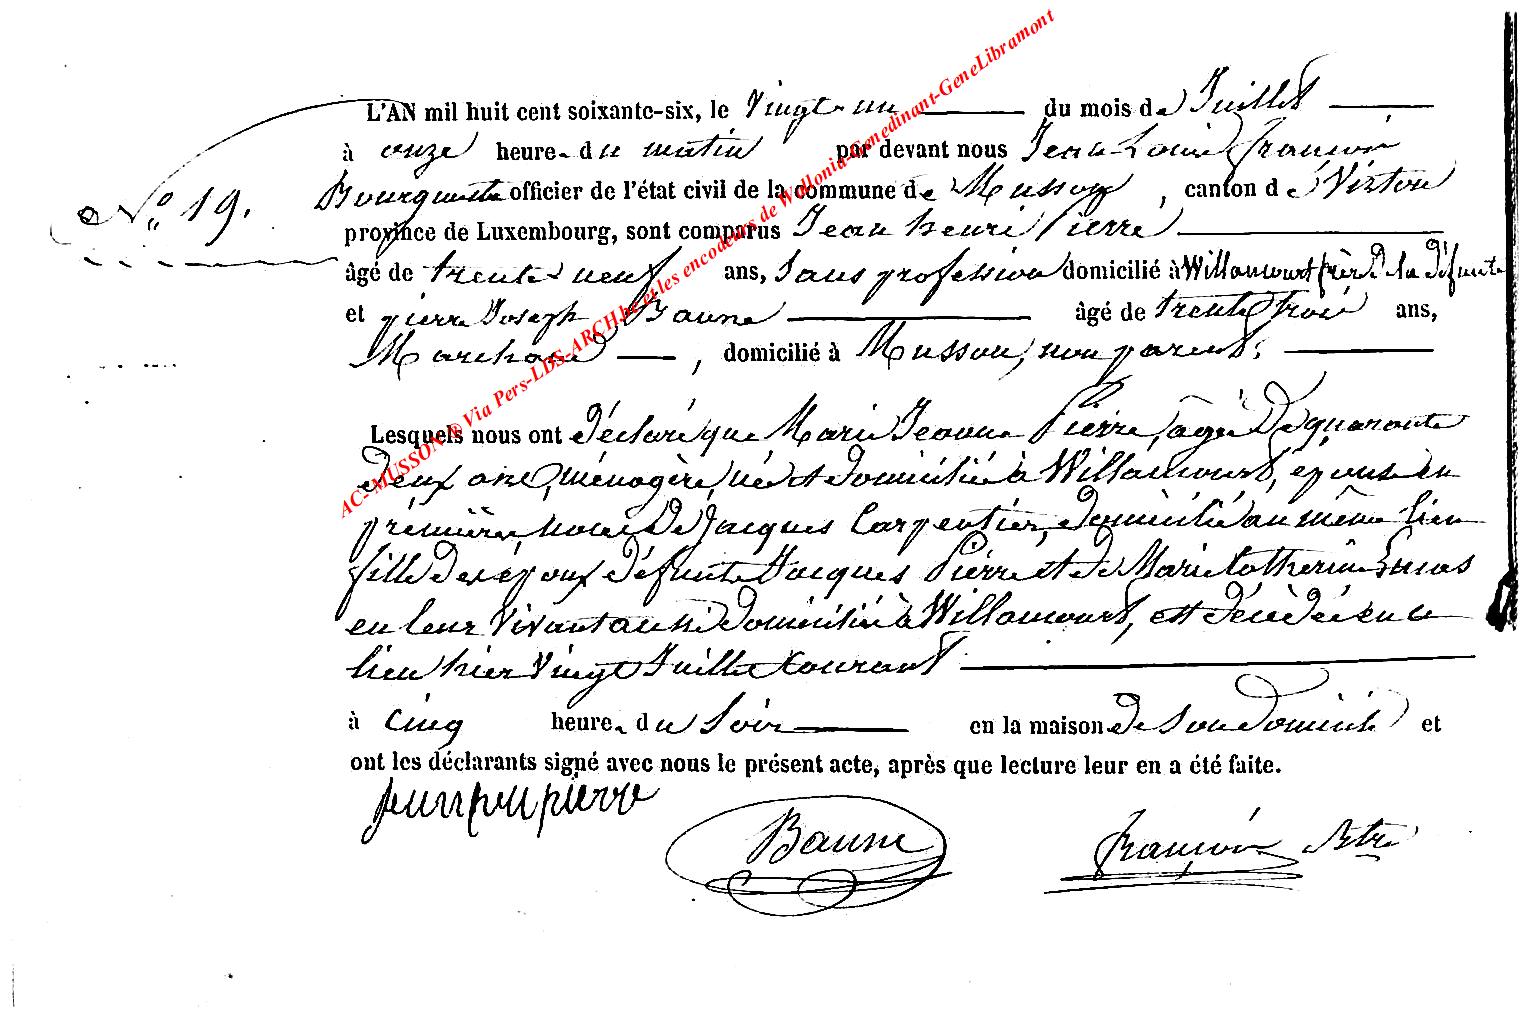 L'AN mil huit cent soixante-six, le Vingt-un du mois de Juillet
à onze heure du matin par devant nous Jean Louis François
N° 19. Bourguet officier de l'état civil de la commune de Musson, canton de Virton
province de Luxembourg, sont comparus Jean henri Pierre
âgé de trente neuf ans, Sans profession domicilié à Willancourt frère de la défunte
et pierre Joseph Baune âgé de trente trois ans,
Marchand, domicilié à Musson, non parent;
Lesquels nous ont déclaré que Marie Jeanne Pierre, agée De quarante
deux ans, ménagère, née et domiciliée à Willancourt, épouse en
première noce De Jacques Carpentier, domicilié au même lieu
fille des époux défunts Jacques Pierre et de Marie Catherine
en leur Vivant aussi domicilié à Willancourt, est décédée en ce
lieu hier Vingt Juillet Courant
à Cinq heure du Soir en la maison de Son domicile et
ont les déclarants signé avec nous le présent acte, après que lecture leur en a été faite.
pierre
Baune
François
AC-MUSSON ® Via Pers-LDS-ARCH.be et les encodeurs de Wallonia-Genedinant-GeneLibramont